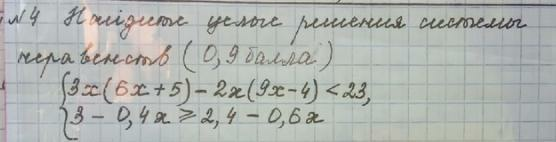 №4 Найдите целые решения системы
неравенств (0,9 балла)
{3x(6x+5)-2x(9x-4)<23,
{3-0,4x≥2,4-0,6x